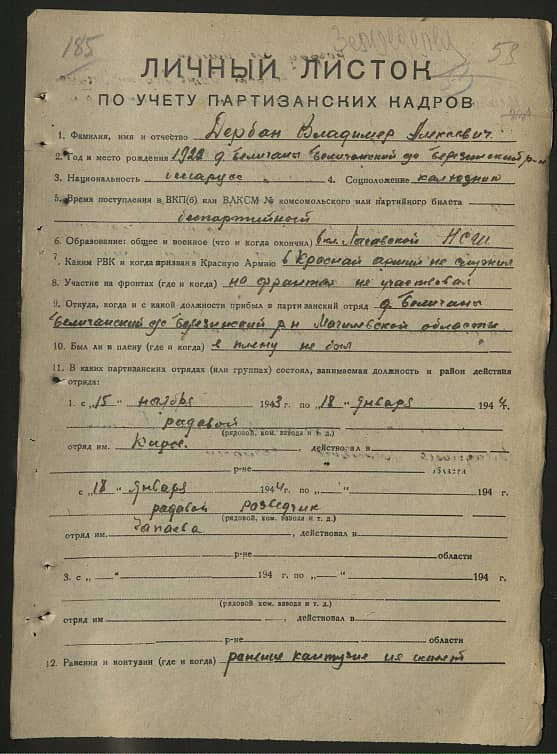 185
53
ЛИЧНЫЙ ЛИСТОК
ПО УЧЕТУ ПАРТИЗАНСКИХ КАДРОВ
1. Фамилия, имя и отчество Дербан Владимер Алексевич
2. Год и место рождения 1922 д. Беличаны Беличанский с/с Березинский р-н
3. Национальность 4. Соцположение колхозник
5. Время поступления в ВКП(б) или ВЛКСМ № комсомольского или партийного билета
беспартийный
6. Образование: общее и военное (что и когда окончил) НСШ
7. Каким РВК и когда призван в Красную Армию в Красной армии не служил
8. Участие на фронтах (где и когда) на фронтах не участвовал
9. Откуда, когда и с какой должности прибыл в партизанский отряд д. Беличаны
Беличанский с/с Березинский р-н Магилевской области
10. Был ли в плену (где и когда) в плену не был
11. В каких партизанских отрядах (или группах) состоял, занимаемая должность и район действия
отряда:
1. с „15" ноября 1943 г. по „18" января 1944 г.
радовой
(рядовой, ком. взвода и т. д.)
отряд им. , действовал в
р-не области
с „18" января 1944 г. по „ " 194 г.
радовой разведчик
(рядовой, ком. взвода и т. д.)
отряд им. Чапаева , действовал в
р-не области
3. с „ " 194 г. по „ " 194 г.
(рядовой, ком. взвода и т. д.)
отряд им , действовал в
р-не области
12. Ранения и контузии (где и когда)